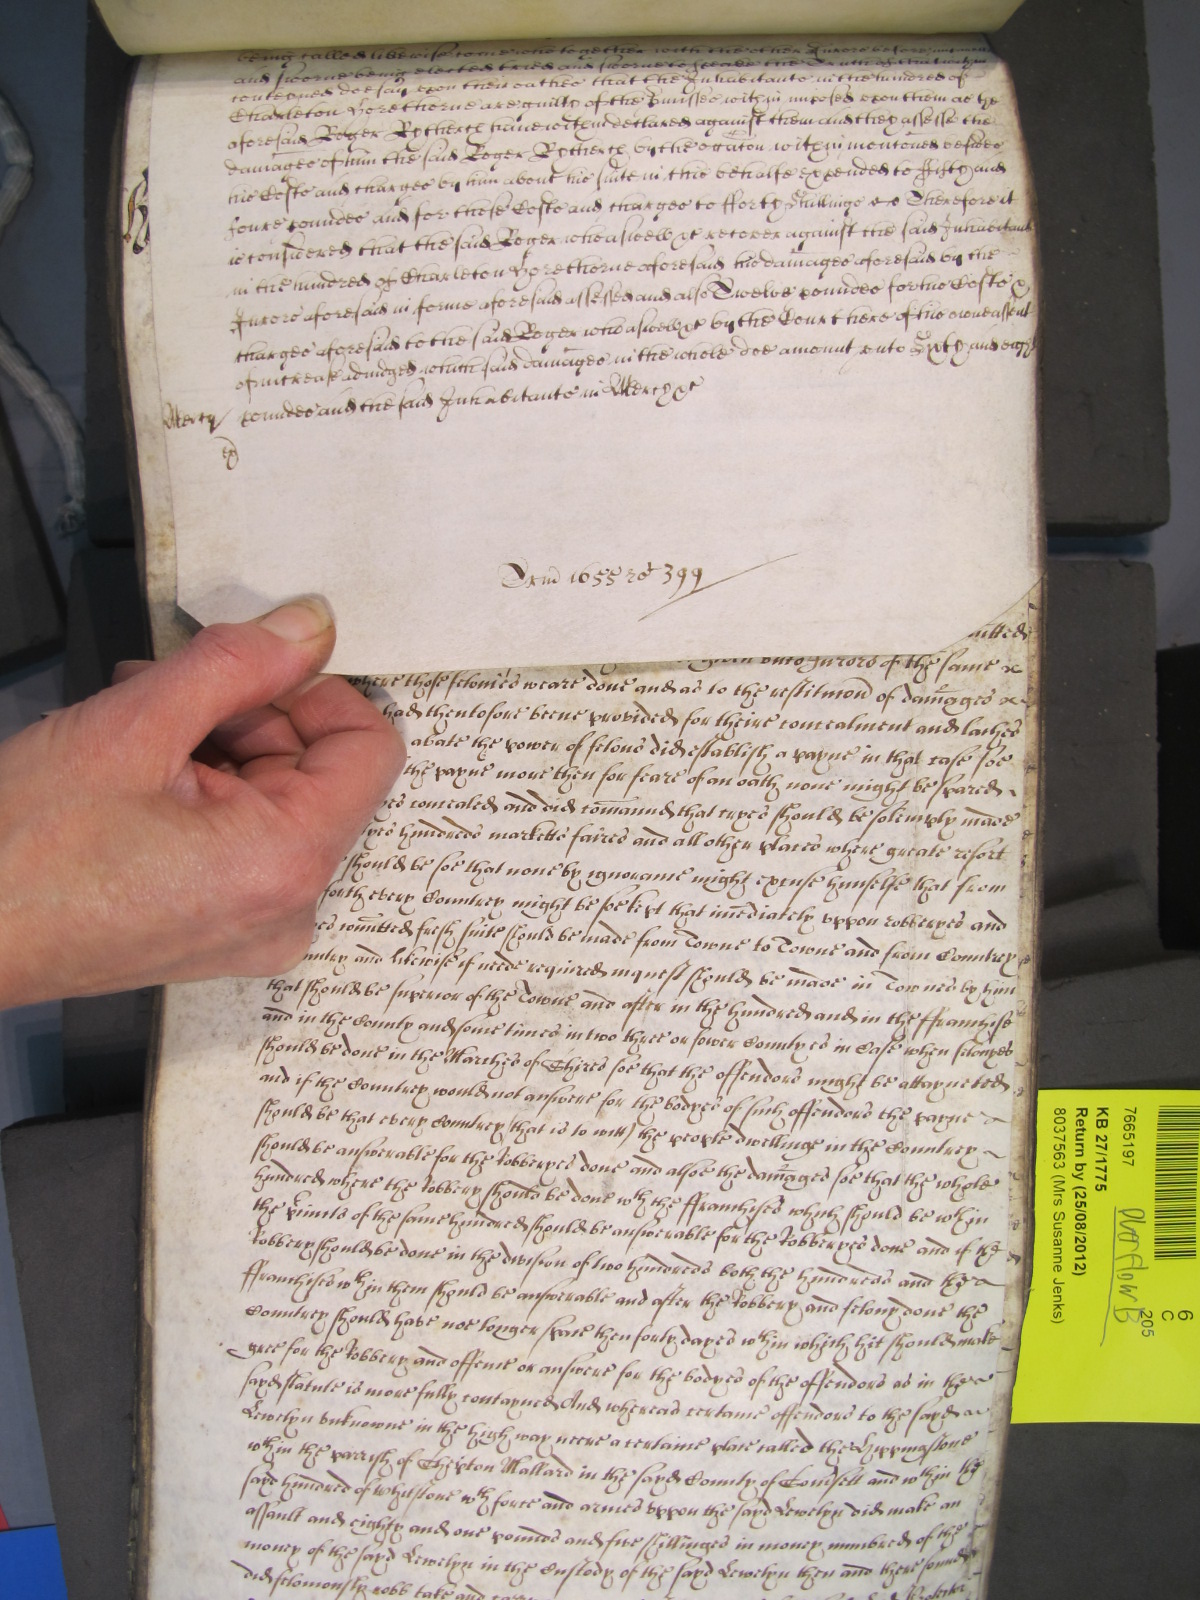 being called likewise come who together with the other Jurors before
and sworne being elected tried and sworne to speake the Truth of that within
conteyned doe say upon their oathes that the Inhabitants in the hundred of
Charleton Horethorne are guilty of the premisses within imposed upon them as the
aforesaid Roger Rytherch have within declared against them and they assesse the
damages of him the said Roger Rytherch by the occāion within mentoned besides
his Costs and charges by him about his suite in this behalfe expended to ffifty and
foure poundes and for those Costs and charges to fforty shillings &c Therefore it
is considered that the said Roger who aswell &c recover against the said Inhabitants
in the hundred of Charleton Horethorne aforesaid his damages aforesaid by the
Jurors aforesaid in forme aforesaid assessed and also Twelve poundes for his Costs &
charges aforesaid to the said Roger who aswell &c by the Court here of his owne assent
of increase adiudged which said damages in the whole doe amount unto Sixty and eight
Mercy poundes and the said Inhabitants in Mercy &c
Trin 1655 ro 399
mitted
unto Jurors of the same &c
where those felonies weare done and as to the restitucon of damages &c
had thentofore beene provided for theire concealment and laches
abate the power of felons did establish a payne in that case soe
the payne more then for feare of an oath none might be spared
concealed and did comaund that cryes should be solemply made
hundreds marketts faires and all other places where greate resort
should be soe that none by ignorance might excuse himselfe that from
forth every Countrey might be soe kept that imediately uppon robberyes and
comitted fresh suite should be made from Towne to Towne and from Countrey
Countrey and likewise if neede required inquest should be made in Townes by him
that should be superior of the Towne and after in the hundred and in the ffranchise
and in the County and sometimes in two three or fower Countyes in Case when felonyes
should be done in the Marches of Shires soe that the offendors might be attaynted
and if the Countrey would not answere for the bodyes of such offendors the payne
should be that every Countrey (that is to witt) the people dwellinge in the Countrey
should be answerable for the Robberyes done and alsoe the damages soe that the whole
hundred where the Robbery should be done wth the ffranchises which should be wthin
the limits of the same hundred should be answerable for the Robberyes done and if the
Robbery should be done in the division of two hundreds both the hundreds and the
ffranchises wthin them should be answerable and after the Robbery and felony done the
Countrey should have noe longer space then forty dayes wthin which hit should make
gree for the Robbery and offence or answere for the bodyes of the offendors as in the
sayd statute is more fully contayned And whereas certaine offendors to the sayd
Lewelyn unknowne in the high way neere a certaine place called the Hippingstone
wthin the parrish of Shepton Mallard in the sayd County of Somsett and wthin the
sayd hundred of Whitstone wth force and armes uppon the sayd Lewelyn did make an
assault and eighty and one pounds and five shillinges in money numbred of the
money of the sayd Lewelyn in the Custody of the sayd Lewelyn then and there found
did feloniously robb take and
7665197
KB 27/1775
Return by (25/08/2012)
8037563 (Mrs Susanne Jenks)
Overflow B
205
6
C